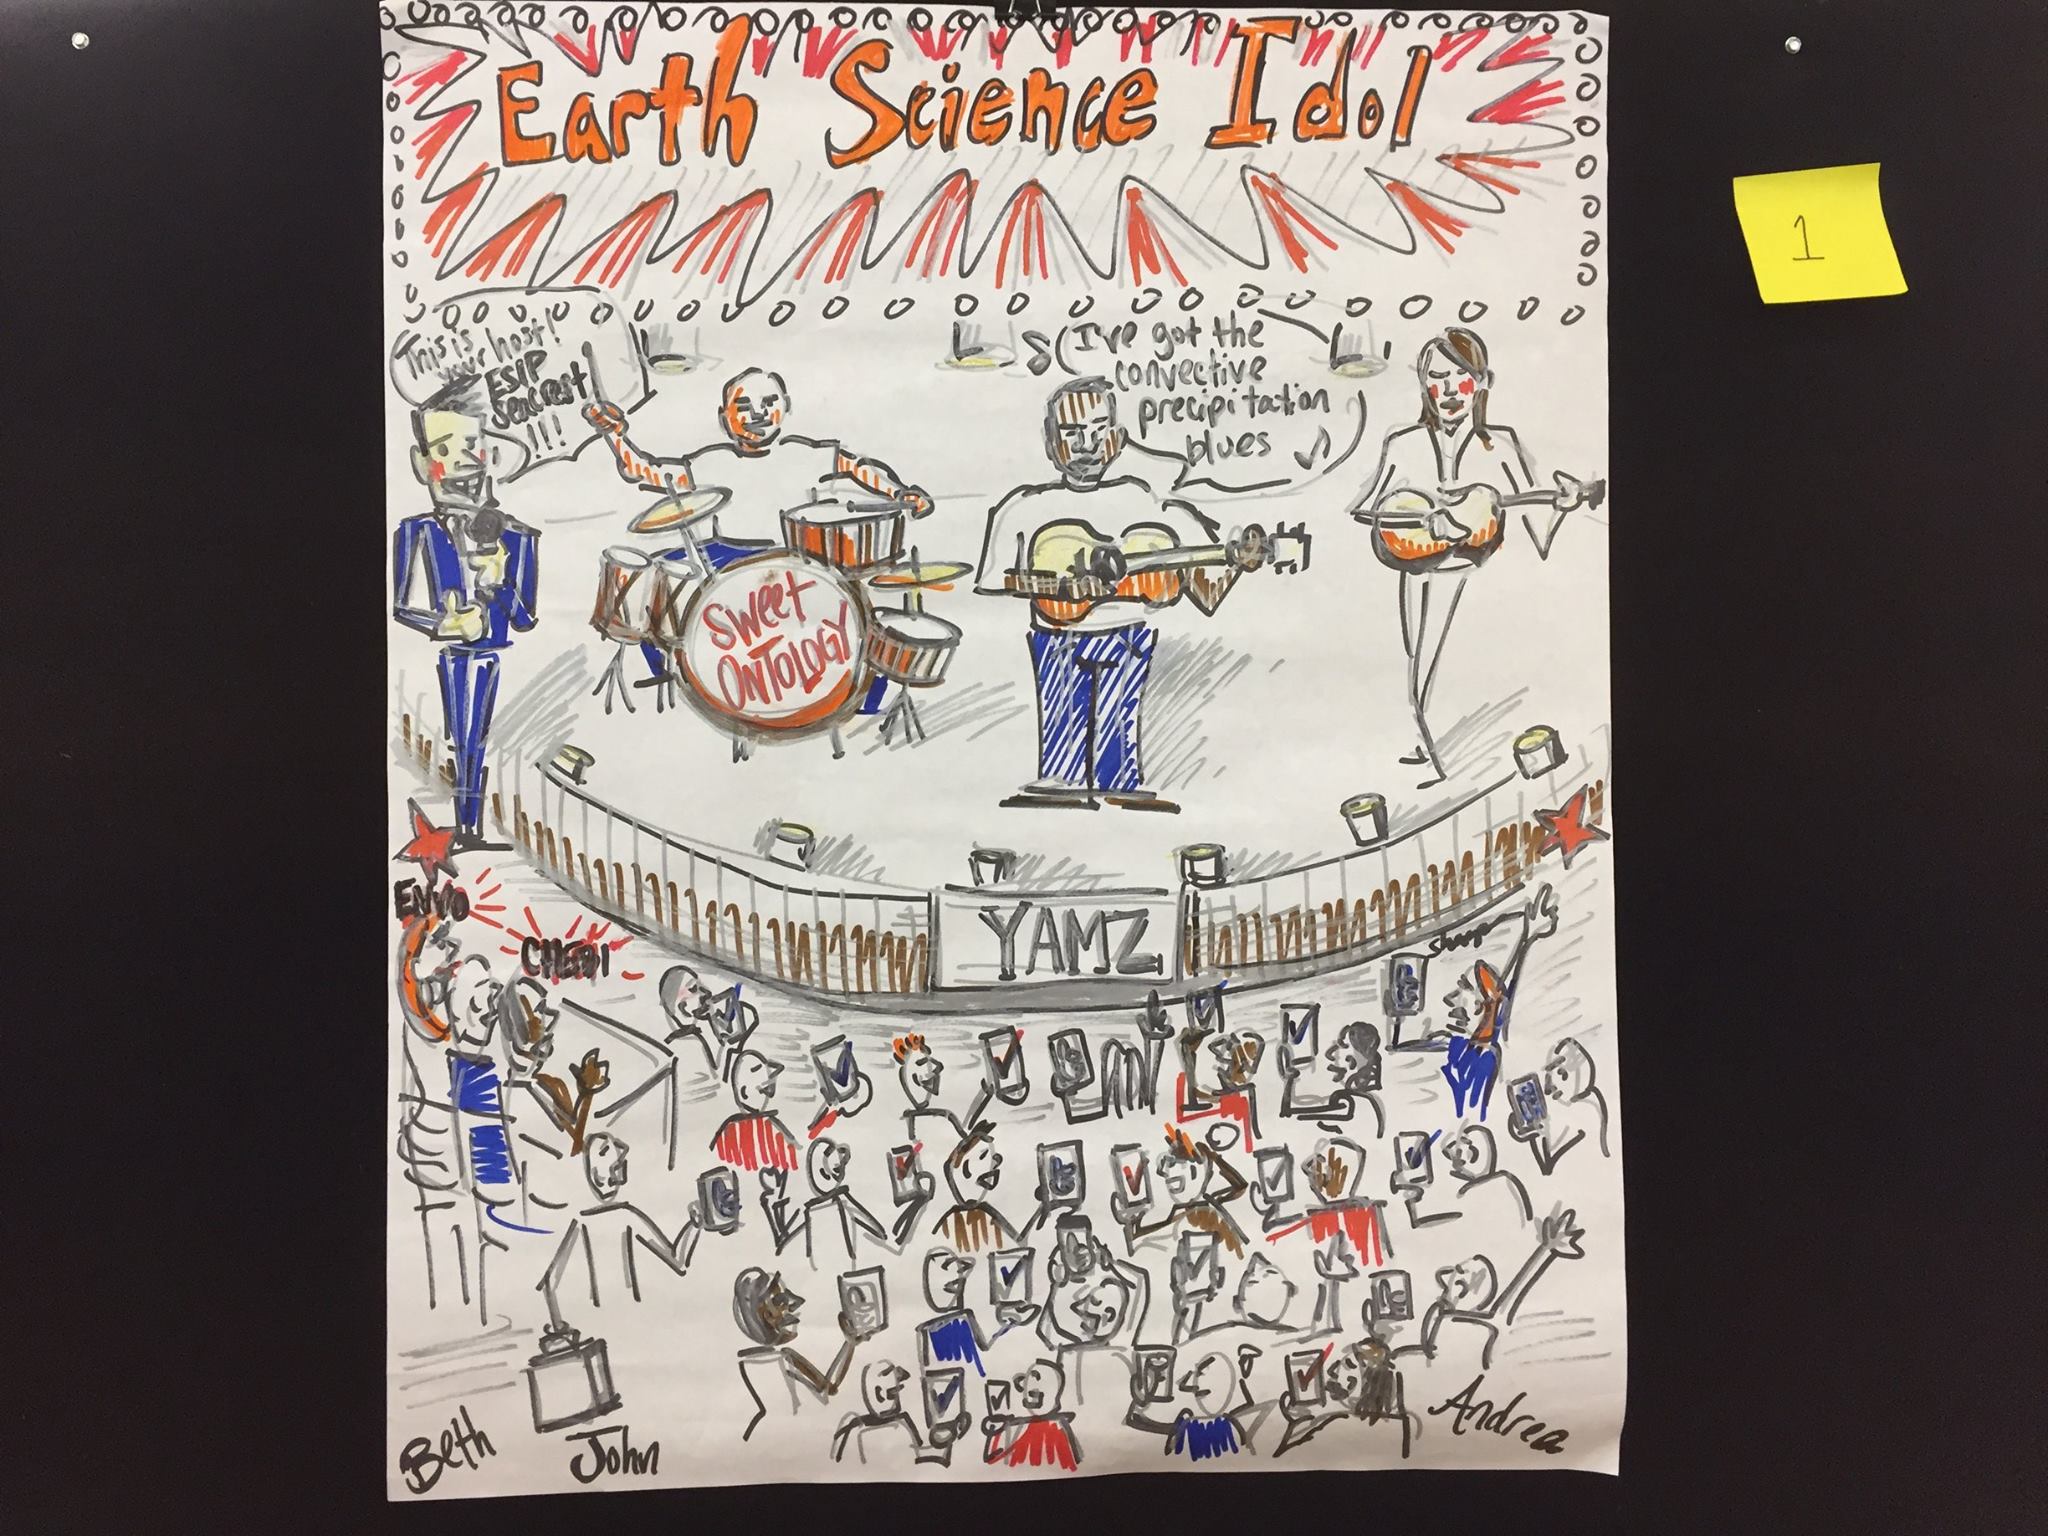 Earth Science Idol
1
This is
your host!
ESIP
Seacrest
!!!
I've got the
convective
precipitation
blues
SWEET
ONTOLOGY
YAMZ
ENVO
CHEBI
Beth
John
Andrea